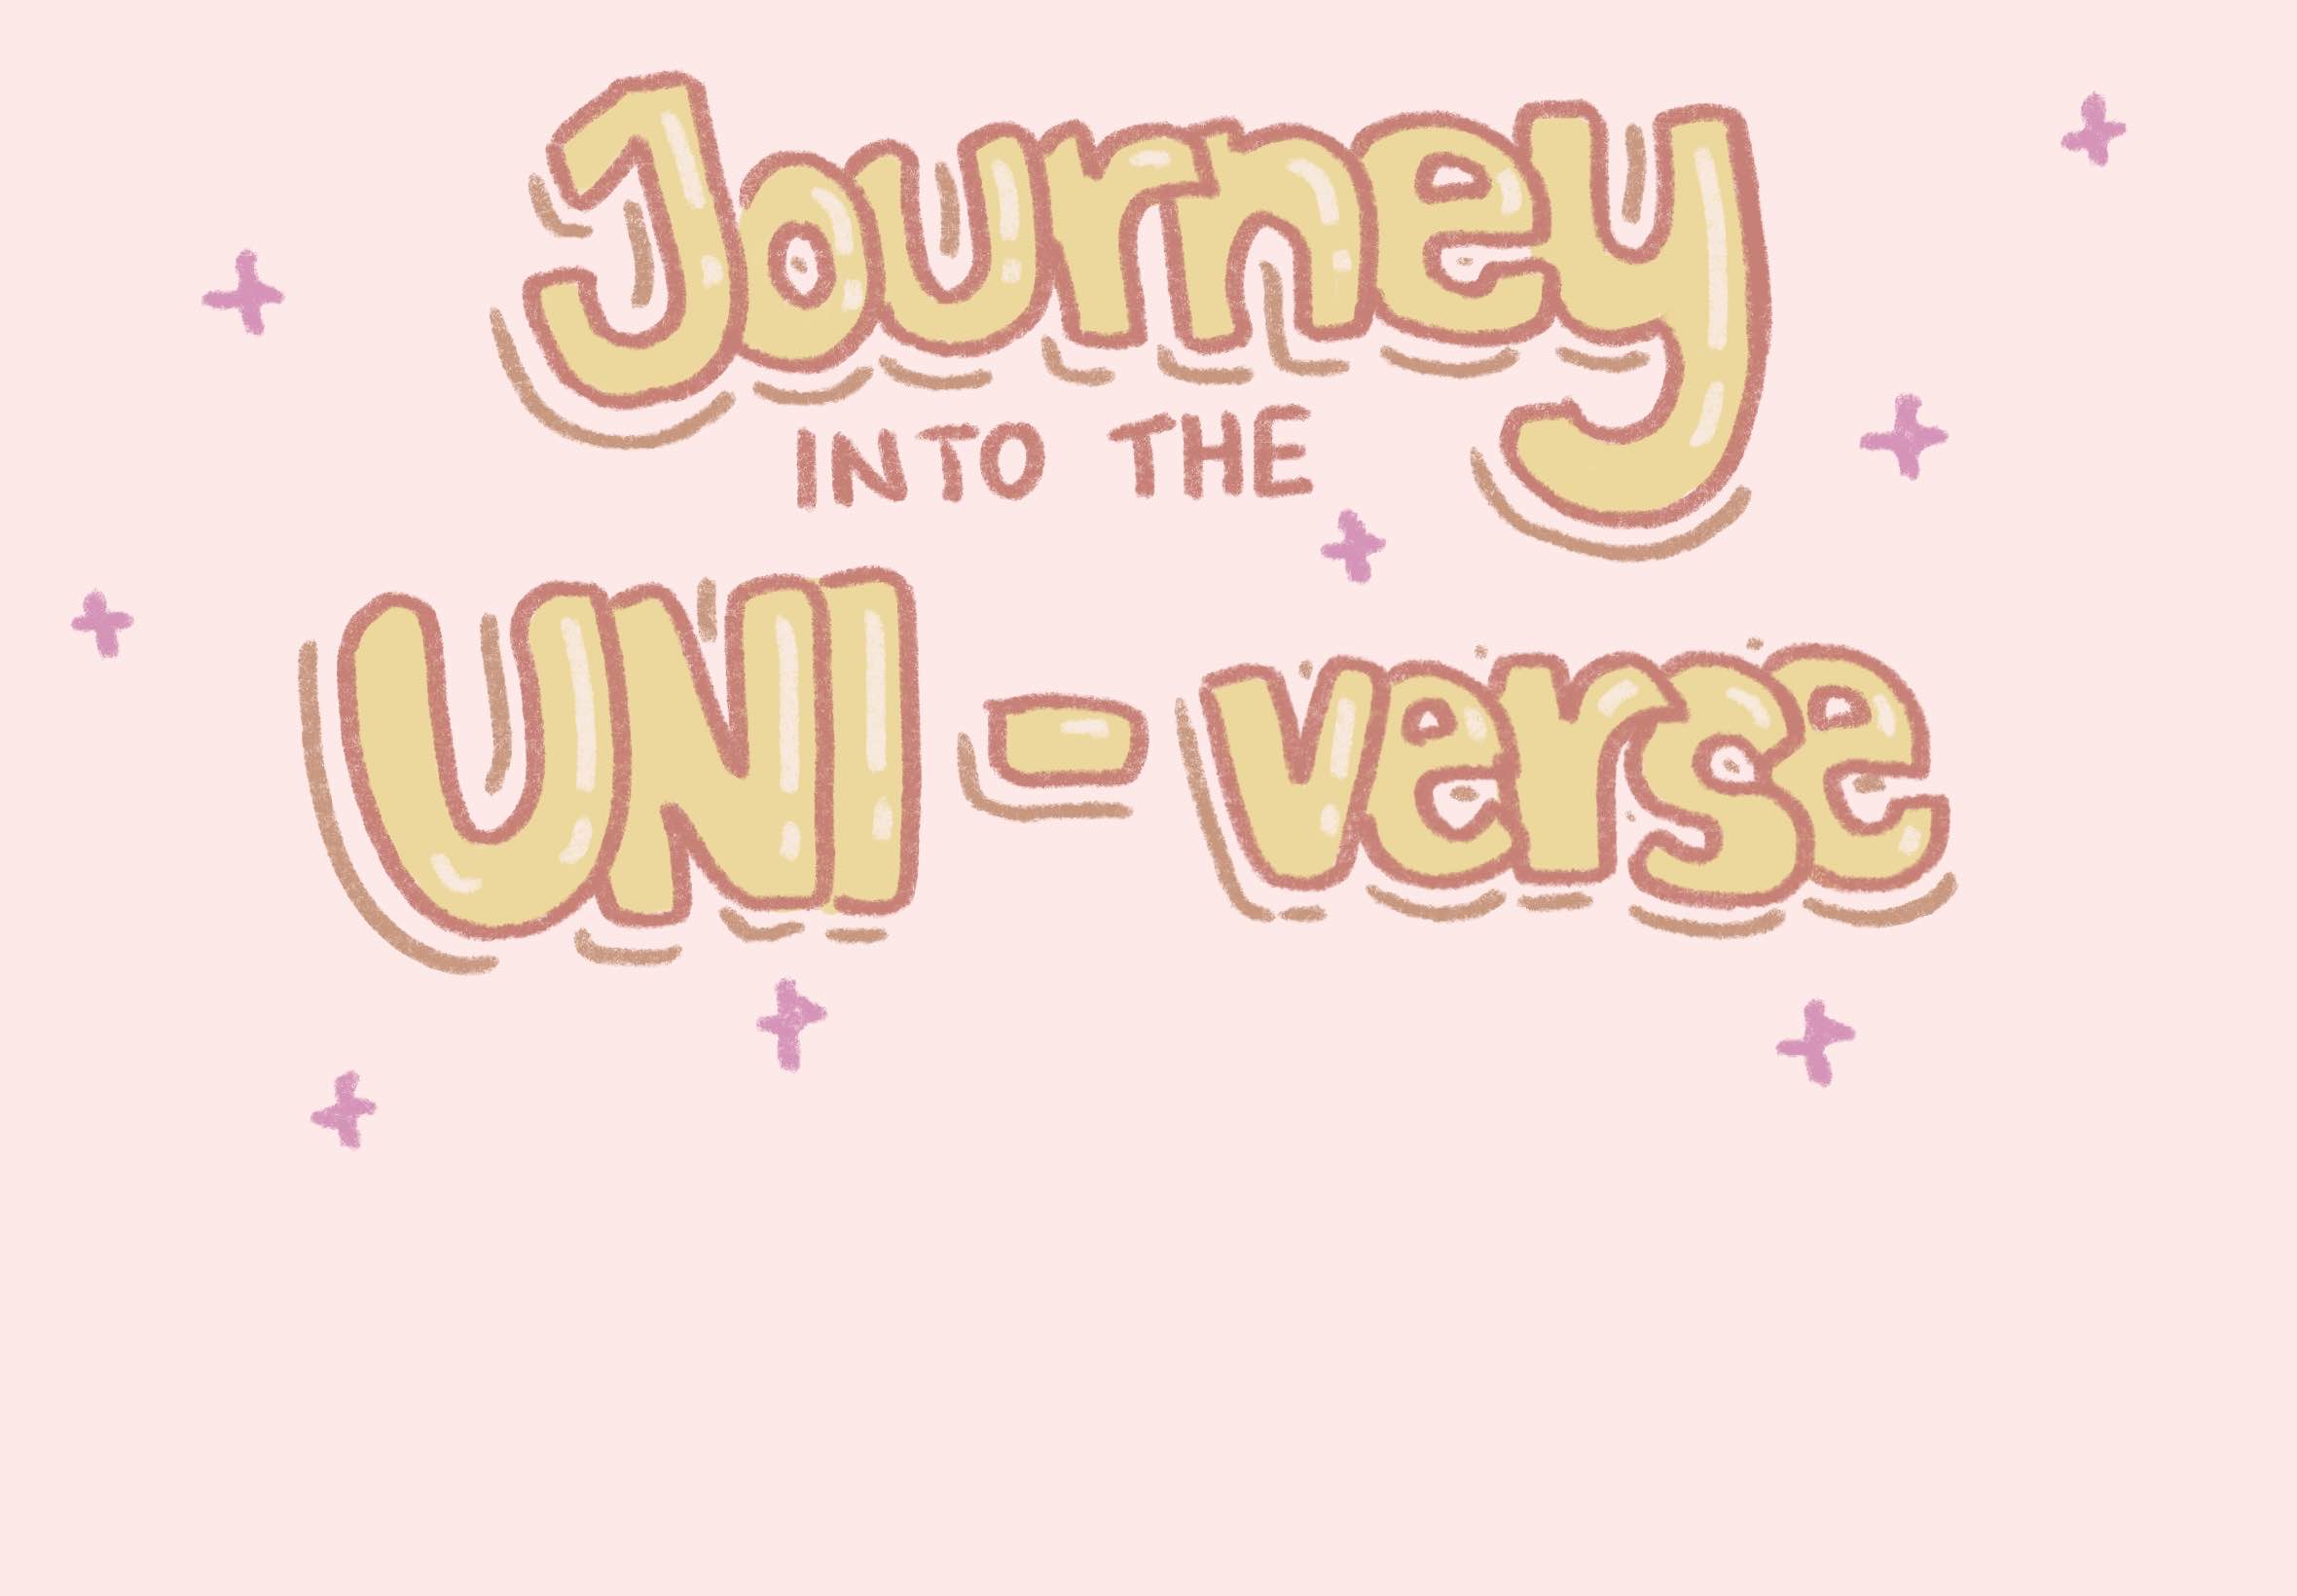 Journey
INTO THE
UNI - verse